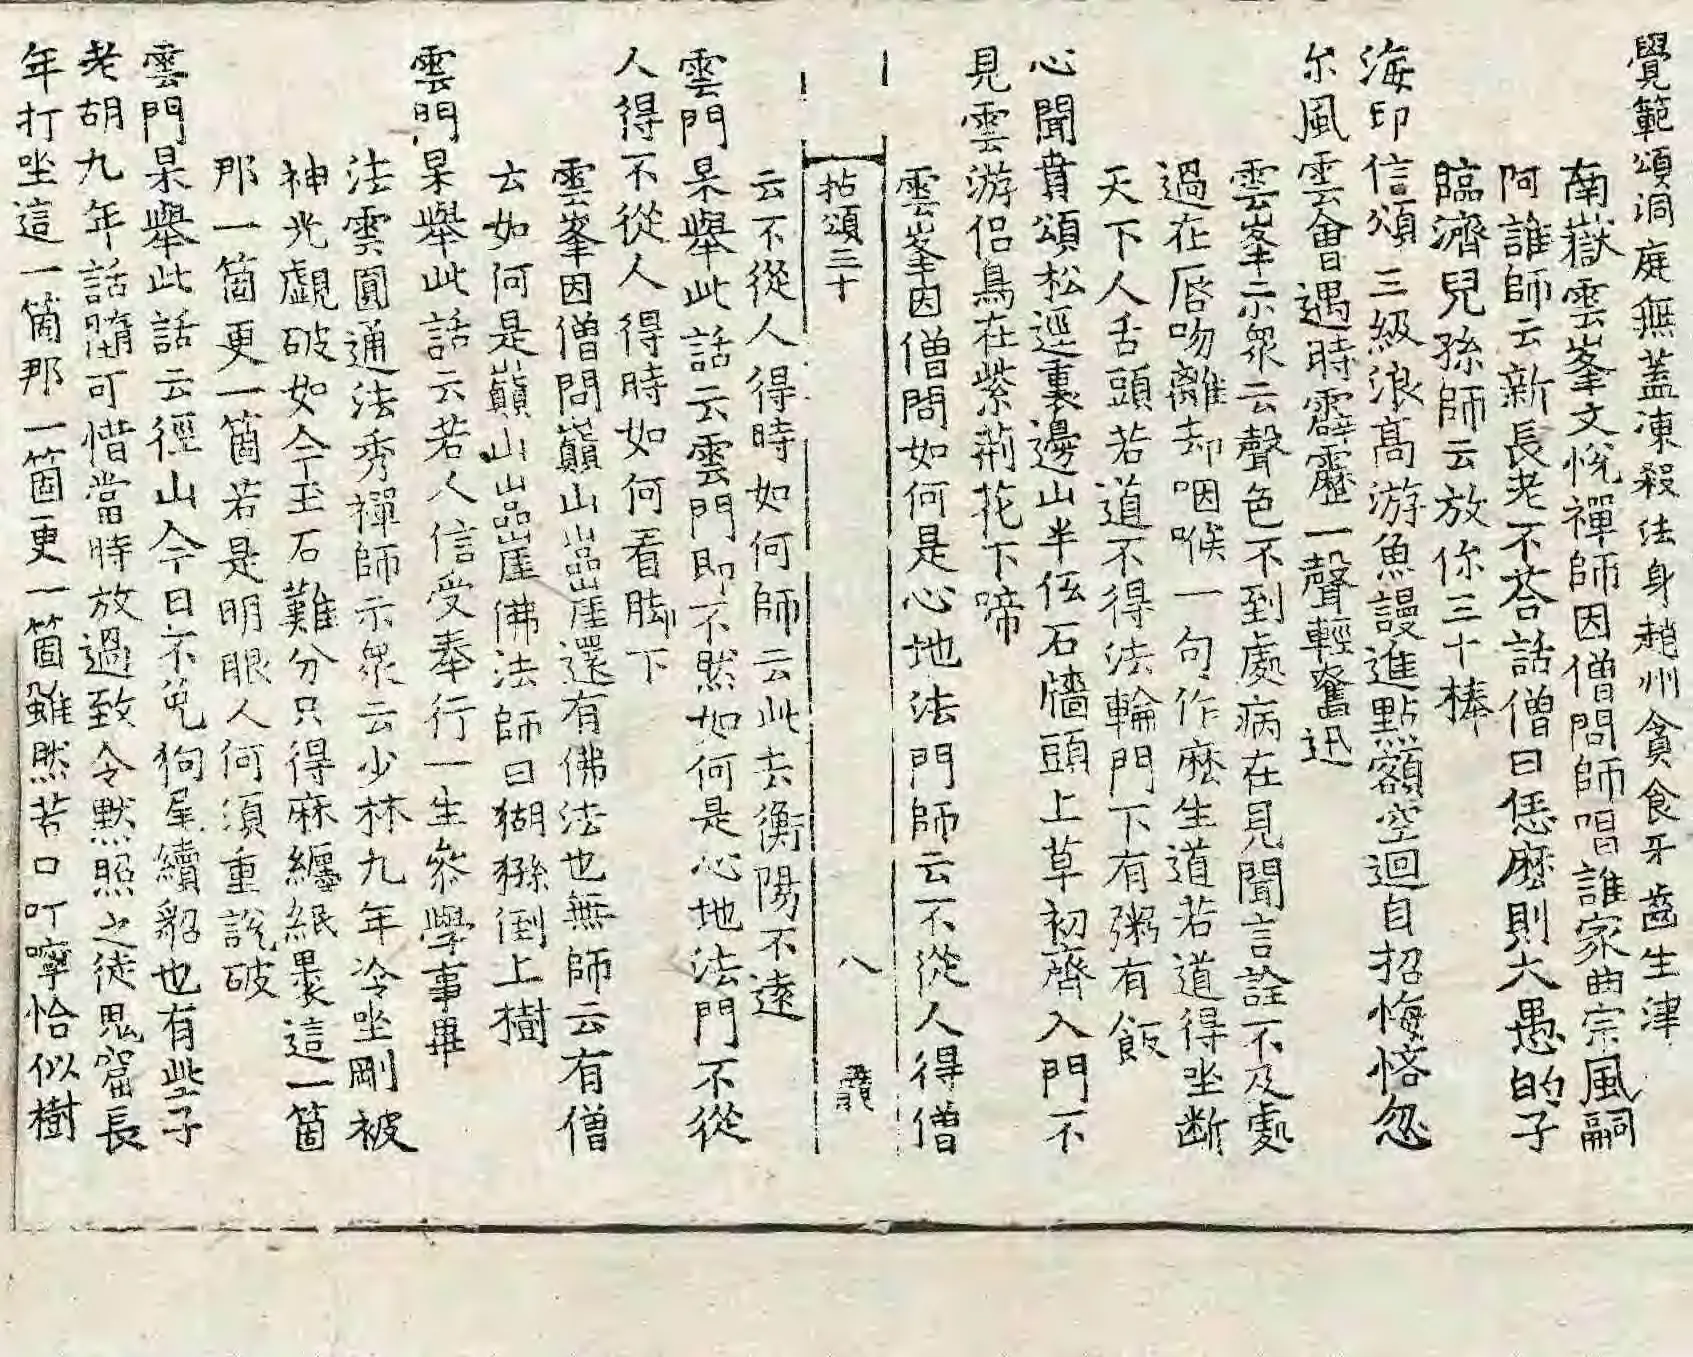 覺範頌洞庭無蓋凍殺法身趙州貪食牙齒生津
南嶽雲峯文悅禪師因僧問師唱誰家曲宗風嗣
阿誰師云新長老不荅話僧曰恁麽則大愚的子
臨濟兒孫師云放你三十棒
海印信頌三級浪高游魚謾進點額空迴自招悔悋忽
尔風雲會遇時霹靂一聲輕奮迅
雲峯示衆云聲色不到處病在見聞言詮不及處
過在唇吻離却咽喉一句作麽生道若道得坐断
天下人舌頭若道不得法輪門下有粥有飯
心聞賁頌松逕裏邊山半伍石牆頭上草初齊入門不
見雲游侶鳥在紫荊花下啼
雲峯因僧問如何是心地法門師云不從人得僧
拈頌三十
八
云不從人得時如何師云此去衡陽不遠
雲門杲舉此話云雲門即不然如何是心地法門不從
人得不從人得時如何看脚下
雲峯因僧問巔山嵓崖還有佛法也無師云有僧
云如何是巔山嵓崖佛法師曰猢猻倒上樹
雲門杲舉此話云若人信受奉行一生叅學事畢
法雲圓通法秀禪師示衆云少林九年冷坐剛被
神光覰破如今玉石難分只得麻纏紙裹這一箇
那一箇更一箇若是明眼人何須重說破
雲門杲舉此話云徑山今日不免狗尾續貂也有些子
老胡九年話墮可惜當時放過致令默照之徒鬼窟長
年打坐這一箇那一箇更一箇雖然苦口叮嚀恰似樹